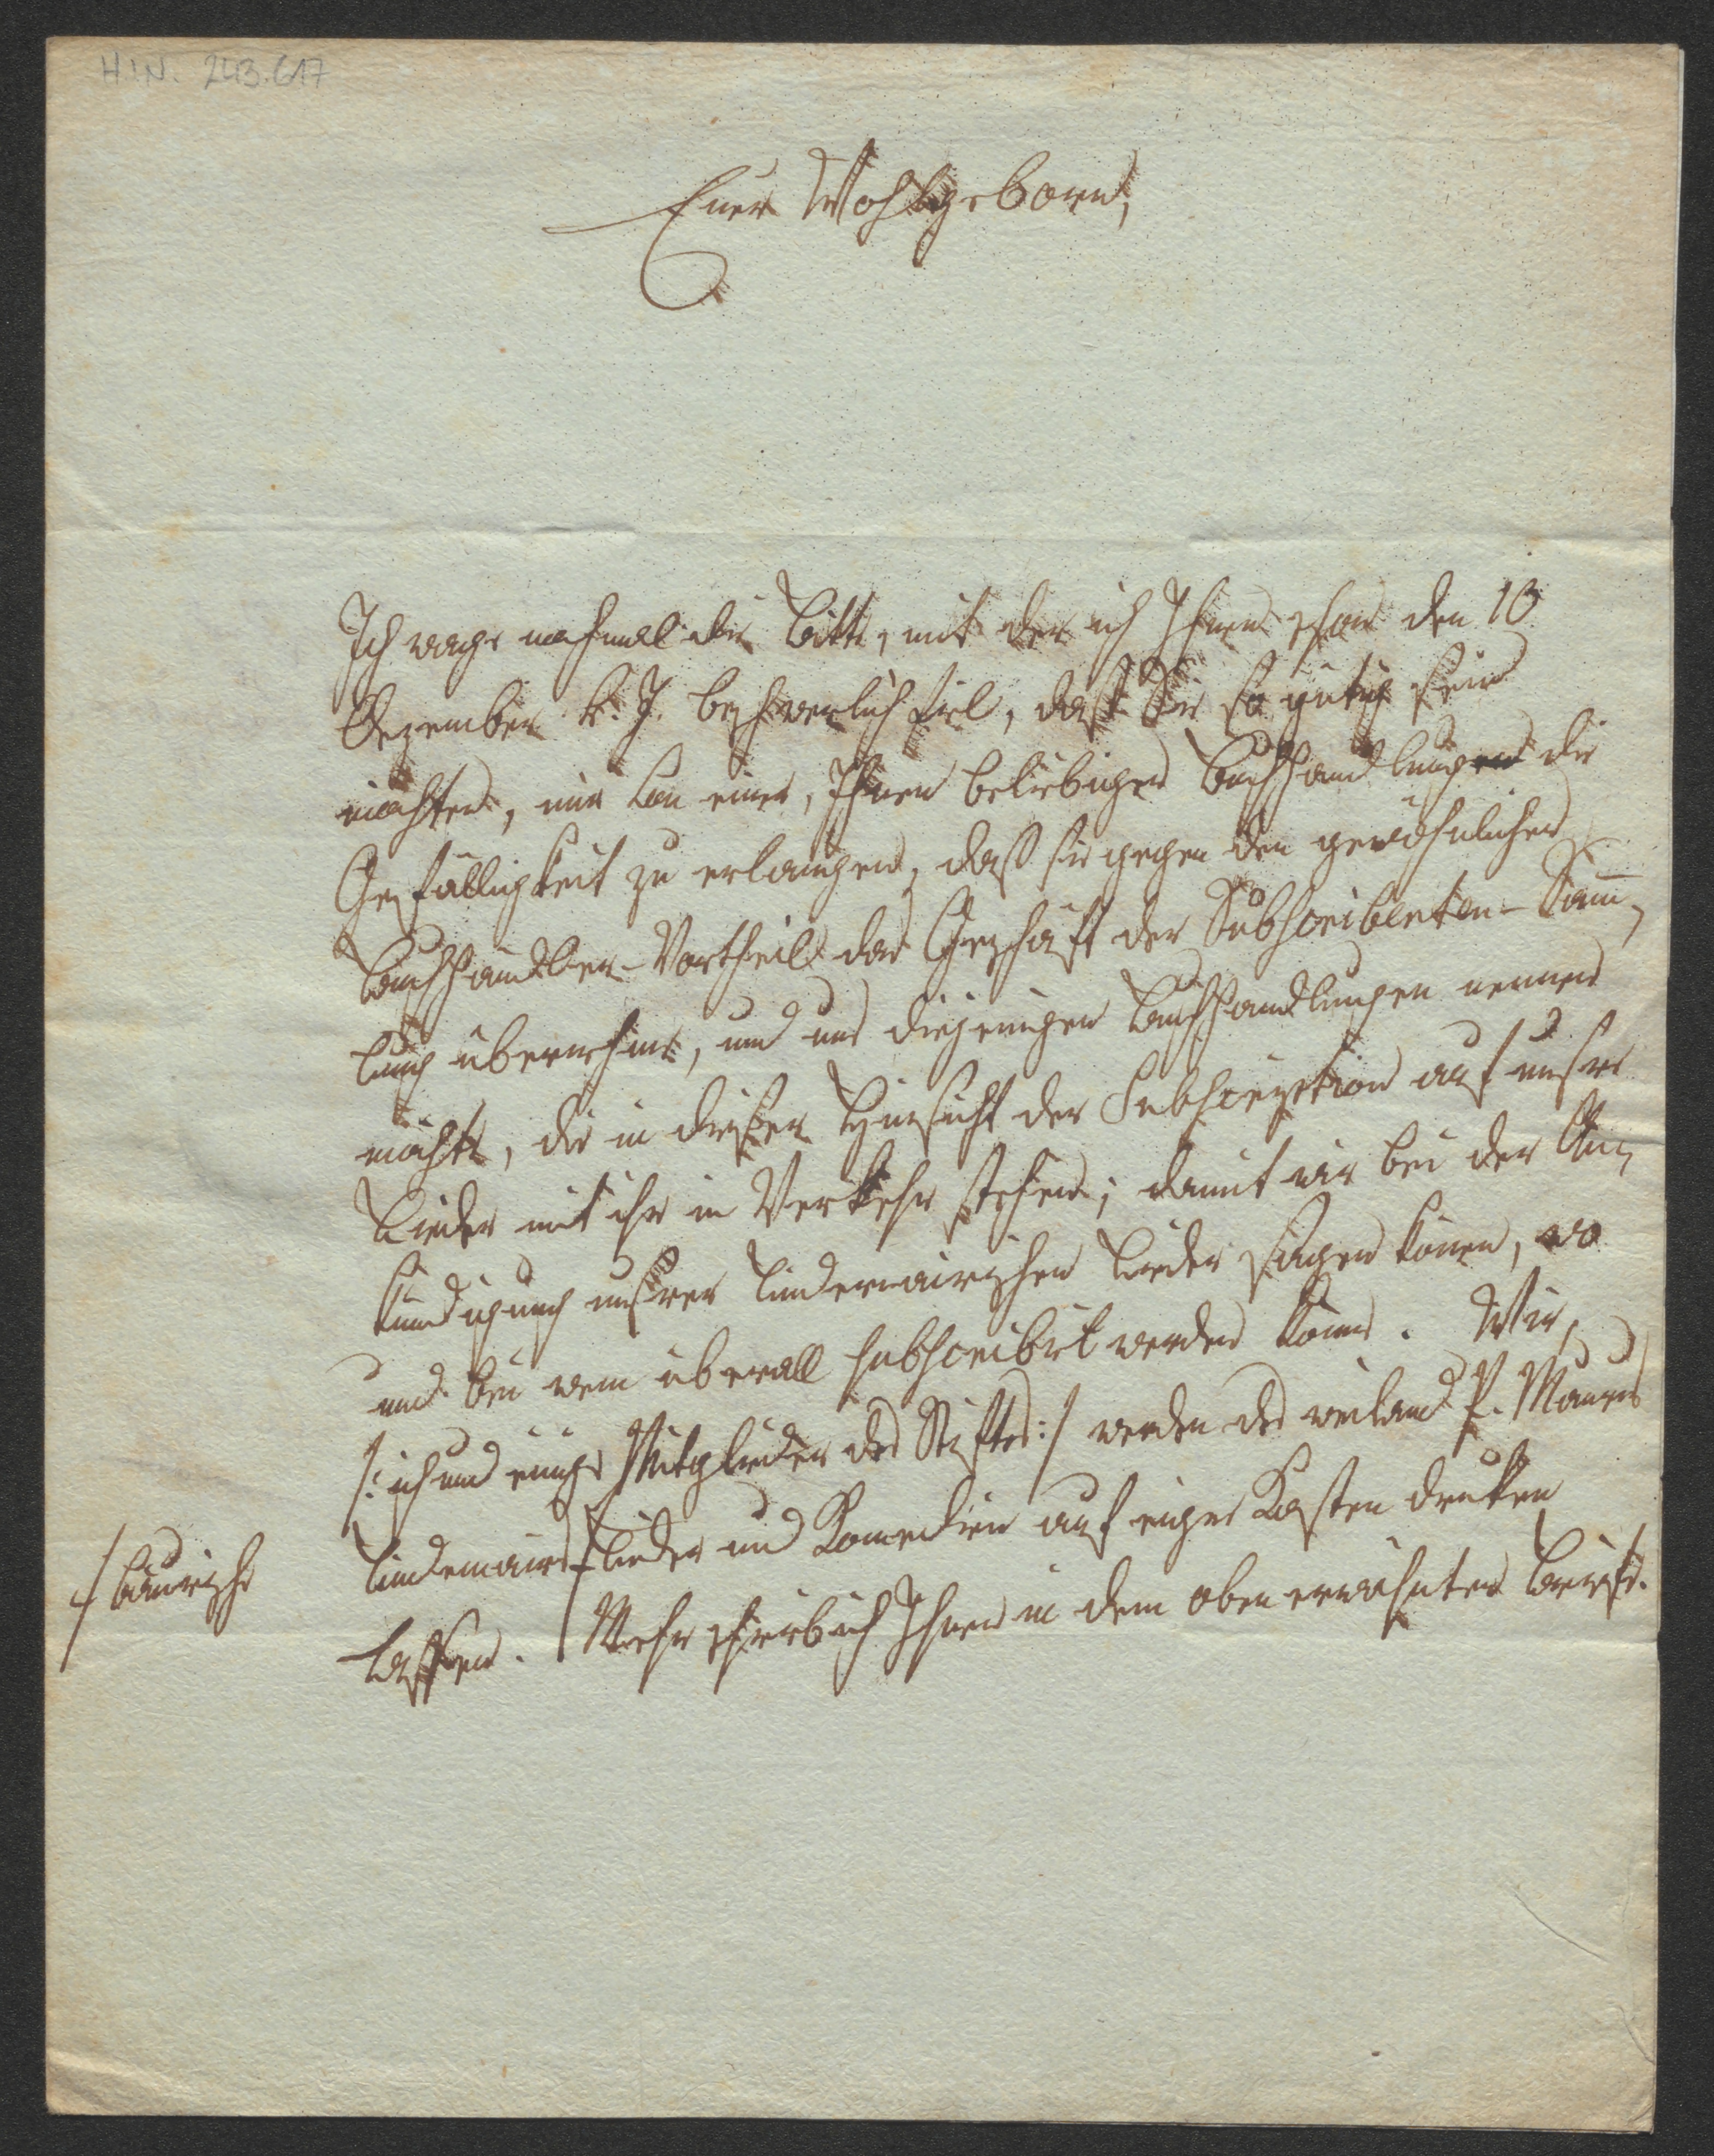 H.I.N. 243.617
Euer Wohlgeborn,
Ich wage nochmal die Bitte, mit der ich Ihnen schon den 10
Dezember v. J. beschwerlich fiel, daß Sie so gütig sein
möchten, mir von einer, Ihnen beliebigen Buchhandlungen die
Gefälligkeit zu erlangen, daß sie gegen den gewöhnlichen
Buchhändler-Vortheil das Geschäft der Subscribenten-Sam̄-
lung übernehme, und uns diejenigen Buchhandlungen nennen
möchte, die in dießer Hinsicht der Subscription auf unsre
Lieder mit ihr in Verkehr stehen; damit wir bei der An-
kündigung unsrer Lindemairischen Lieder sagen können, wo
und bei wem überall subscribirt werden könne. Wir,
/: ich und einige Mitglieder des Stiftes :/ werden des weiland P. Maurus
Lindemairs ⌿ Lieder und Komedien auf eigne Kosten drucken
⌿ bäurische
lassen. Mehr schrieb ich Ihnen in dem oben erwähnten Briefe.